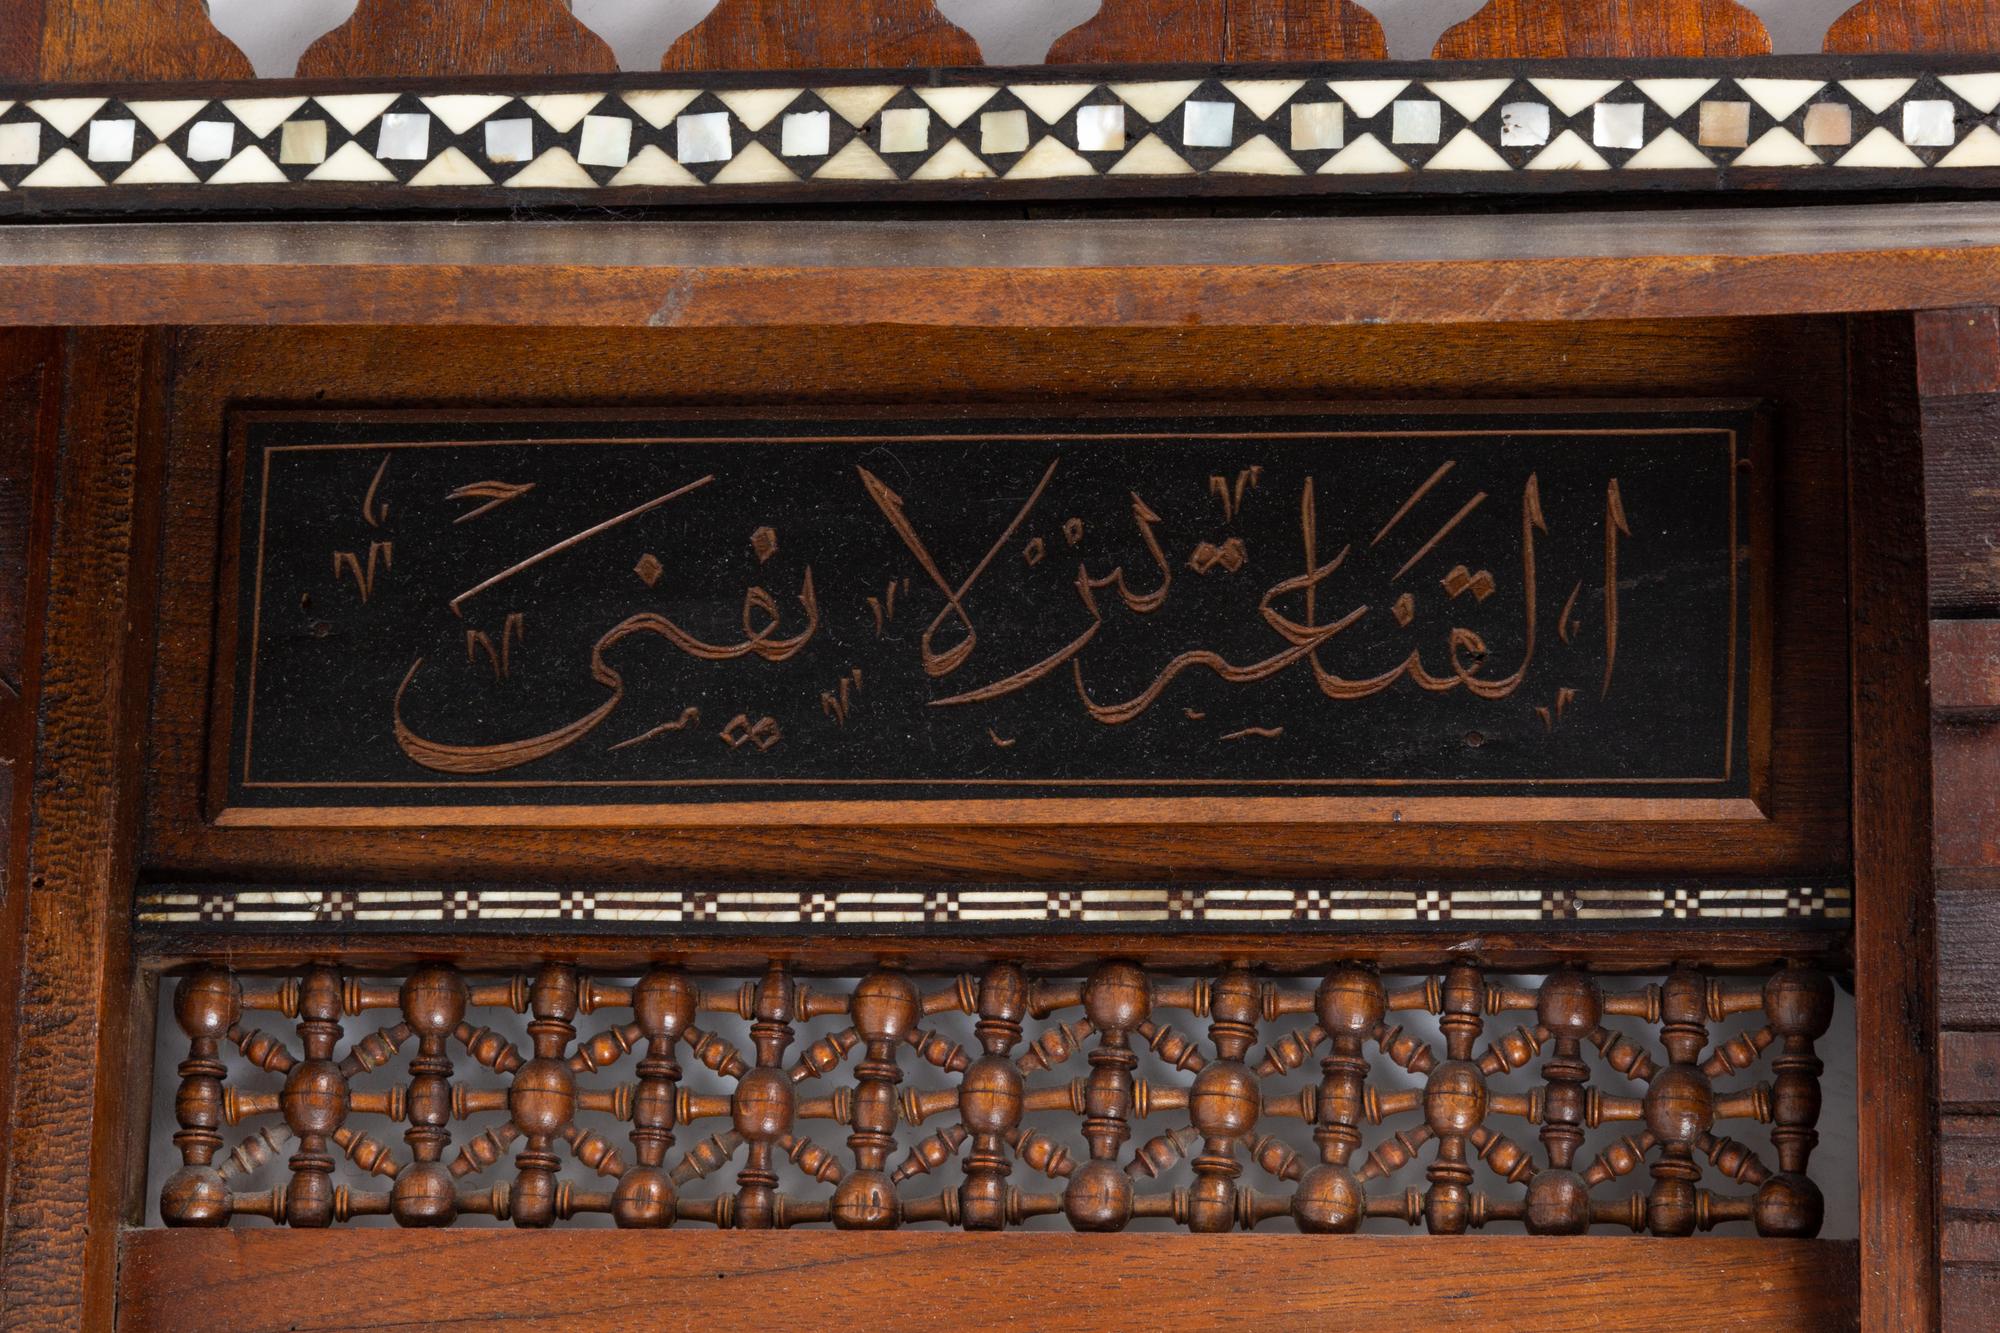 القناعة كنز لا يفنى